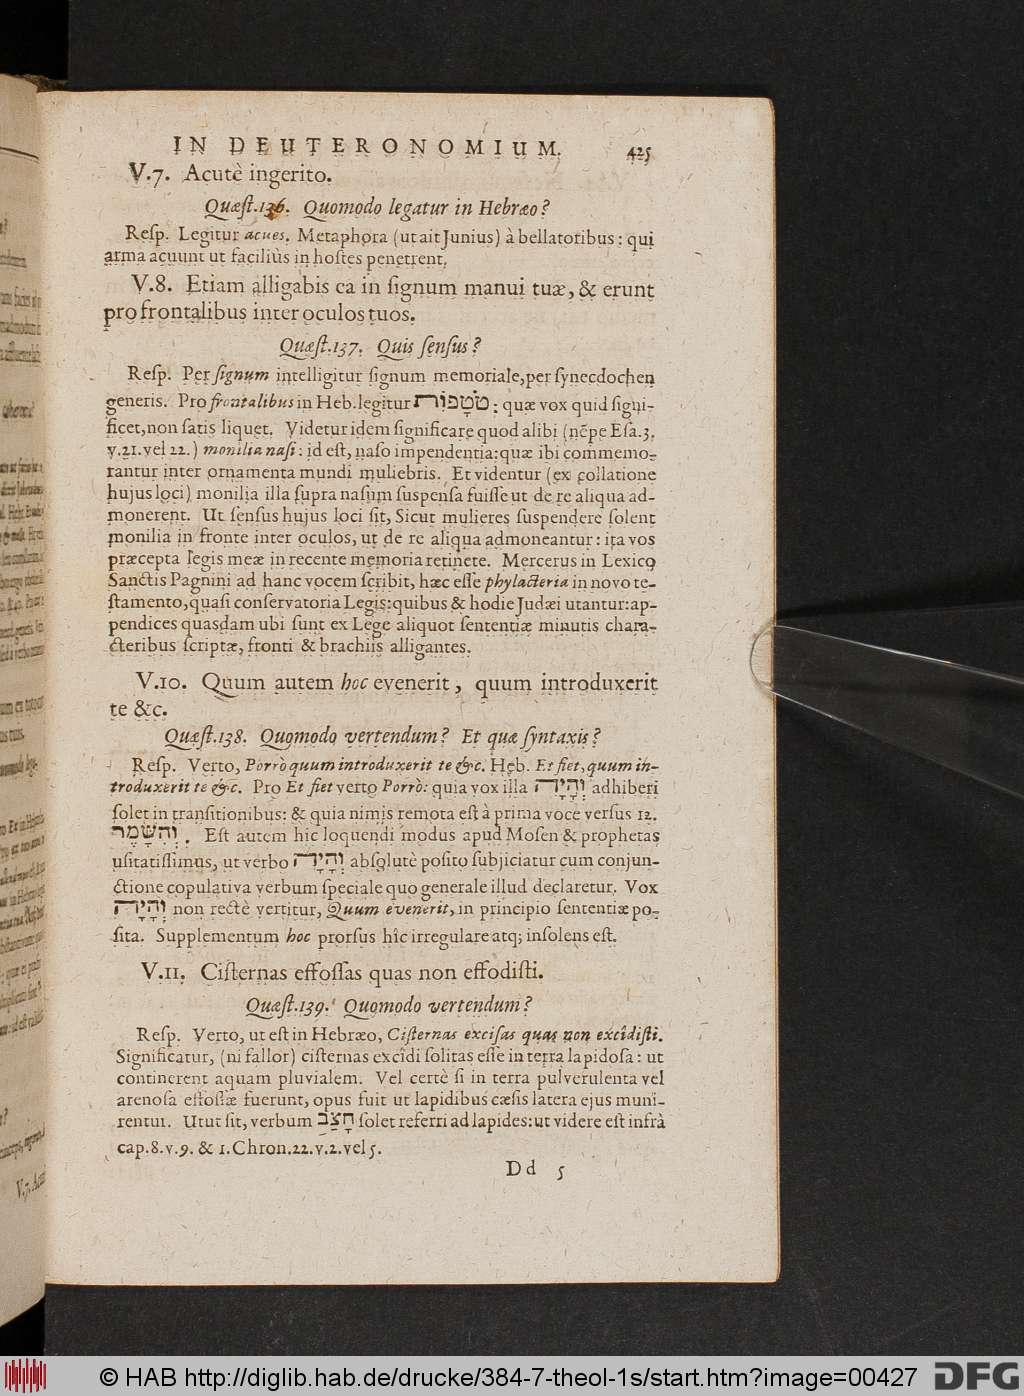 IN DEUTERONOMIUM. 425
V.7. Acutè ingerito.
Quæſt.136. Quomodo legatur in Hebræo?
Reſp. Legitur acues. Metaphora (ut ait Junius) à bellatoribus: qui
arma acuunt ut faciliùs in hoſtes penetrent.
V.8. Etiam alligabis ea in ſignum manui tuæ, & erunt
pro frontalibus inter oculos tuos.
Quæſt.137. Quis ſenſus?
Reſp. Per ſignum intelligitur ſignum memoriale, per ſynecdochen
generis. Pro frontalibus in Heb. legitur טֹטָפוֹת: quæ vox quid ſigni-
ficet, non ſatis liquet. Videtur idem ſignificare quod alibi (nẽpe Eſa.3.
v.21. vel 22.) monilia naſi: id eſt, naſo impendentia: quæ ibi commemo-
rantur inter ornamenta mundi muliebris. Et videntur (ex collatione
hujus loci) monilia illa ſupra naſum ſuspenſa fuiſſe ut de re aliqua ad-
monerent. Ut ſenſus hujus loci ſit, Sicut mulieres ſuspendere ſolent
monilia in fronte inter oculos, ut de re aliqua admoneantur: ita vos
præcepta legis meæ in recente memoria retinete. Mercerus in Lexico
Sanctis Pagnini ad hanc vocem ſcribit, hæc eſſe phylacteria in novo te-
ſtamento, quaſi conſervatoria Legis: quibus & hodie Judæi utantur: ap-
pendices quasdam ubi ſunt ex Lege aliquot ſententiæ minutis chara-
cteribus ſcriptæ, fronti & brachiis alligantes.
V.10. Quum autem hoc evenerit, quum introduxerit
te &c.
Quæſt.138. Quomodo vertendum? Et quæ ſyntaxis?
Reſp. Verto, Porrò quum introduxerit te &c. Heb. Et fiet, quum in-
troduxerit te &c. Pro Et fiet verto Porrò: quia vox illa וְהָיָה adhiberi
ſolet in tranſitionibus: & quia nimis remota eſt à prima voce verſus 12.
וְהִשָּׁמֶר. Eſt autem hic loquendi modus apud Moſen & prophetas
uſitatiſſimus, ut verbo וְהָיָה abſolutè poſito ſubjiciatur cum conjun-
ctione copulativa verbum ſpeciale quo generale illud declaretur. Vox
וְהָיָה non rectè vertitur, Quum evenerit, in principio ſententiæ po-
ſita. Supplementum hoc prorſus hîc irregulare atq; inſolens eſt.
V.11. Ciſternas effoſſas quas non effodiſti.
Quæſt.139. Quomodo vertendum?
Reſp. Verto, ut eſt in Hebræo, Ciſternas exciſas quas non excîdiſti.
Significatur, (ni fallor) ciſternas excîdi ſolitas eſſe in terra lapidoſa: ut
continerent aquam pluvialem. Vel certè ſi in terra pulverulenta vel
arenoſa effoſſæ fuerunt, opus fuit ut lapidibus cæſis latera ejus muni-
rentur. Utut ſit, verbum חָצַב ſolet referri ad lapides: ut videre eſt infrà
cap.8.v.9. & 1.Chron.22.v.2. vel 5.
Dd 5
© HAB http://diglib.hab.de/drucke/384-7-theol-1s/start.htm?image=00427
DFG